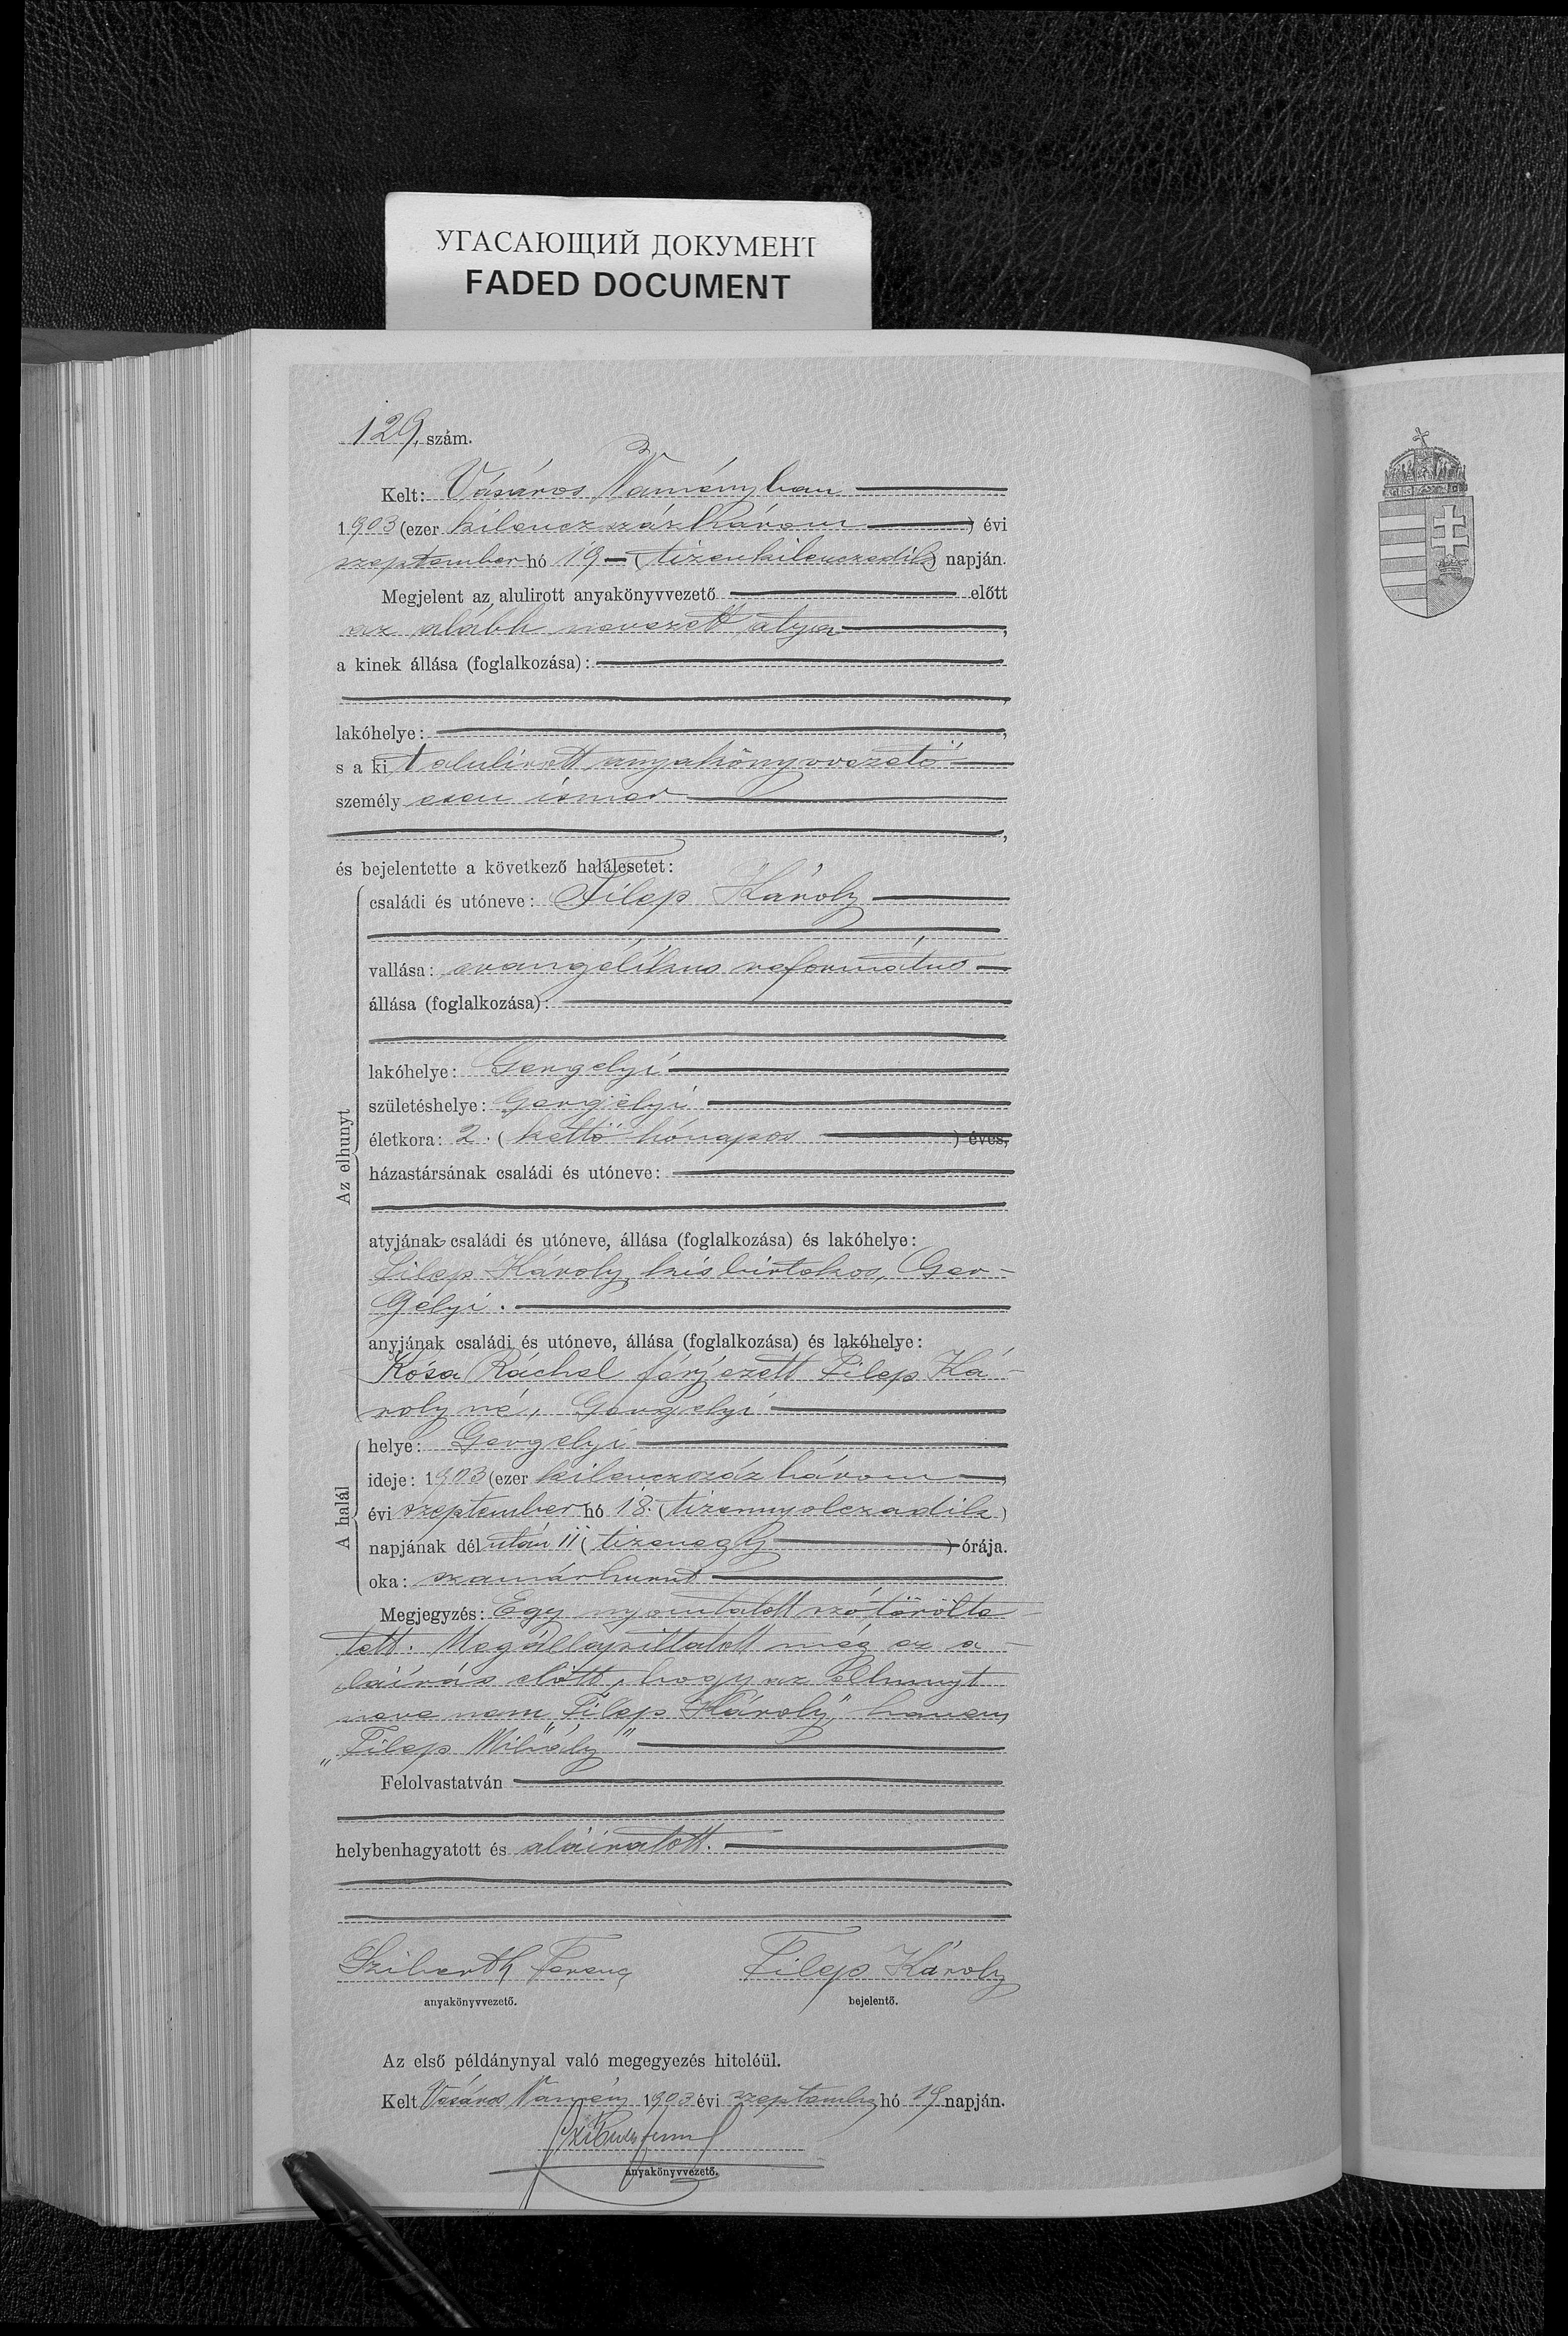 УГАСАЮЩИЙ ДОКУМЕНТ
FADED DOCUMENT
129. szám.
Kelt: Vásáros Naményban
1903 (ezer kilenczszázhárom ) évi
szeptember hó 19 (tizenkilenczedik) napján.
Megjelent az alulirott anyakönyvvezető előtt
az alább nevezett atya,
a kinek állása (foglalkozása):
lakóhelye:
s a kit alulírott anyakönyvvezető
személyesen ismer
és bejelentette a következő halálesetet:
családi és utóneve: Filep Károly
vallása: evangélikus református
állása (foglalkozása):
lakóhelye: Gergelyi
születéshelye: Gergelyi
Az elhunyt
életkora: 2. (kettő hónapos ) éves,
házastársának családi és utóneve:
atyjának családi és utóneve, állása (foglalkozása) és lakóhelye:
Filep Károly kisbirtokos, Ger-
gelyi.
anyjának családi és utóneve, állása (foglalkozása) és lakóhelye:
Kósa Ráchel férjezett Filep Ká-
rolyné, Gergelyi
A halál
helye: Gergelyi
ideje: 1903 (ezer kilenczszázhárom )
évi szeptember hó 18. (tizennyolczadik)
napjának délután 11 (tizenegy ) órája.
oka: szamárhurut
Megjegyzés: Egy nyomtatott szó törölte-
tett. Megállapíttatott még az a-
láírás előtt, hogy az elhunyt
neve nem „Filep Károly", hanem
„Filep Mihály"
Felolvastatván
helybenhagyatott és aláíratott.
Sziberth Ferenc Filep Károly
anyakönyvvezető. bejelentő.
Az első példánynyal való megegyezés hiteléül.
Kelt Vásáros Namény 1903 évi szeptember hó 19 napján.
anyakönyvvezető.